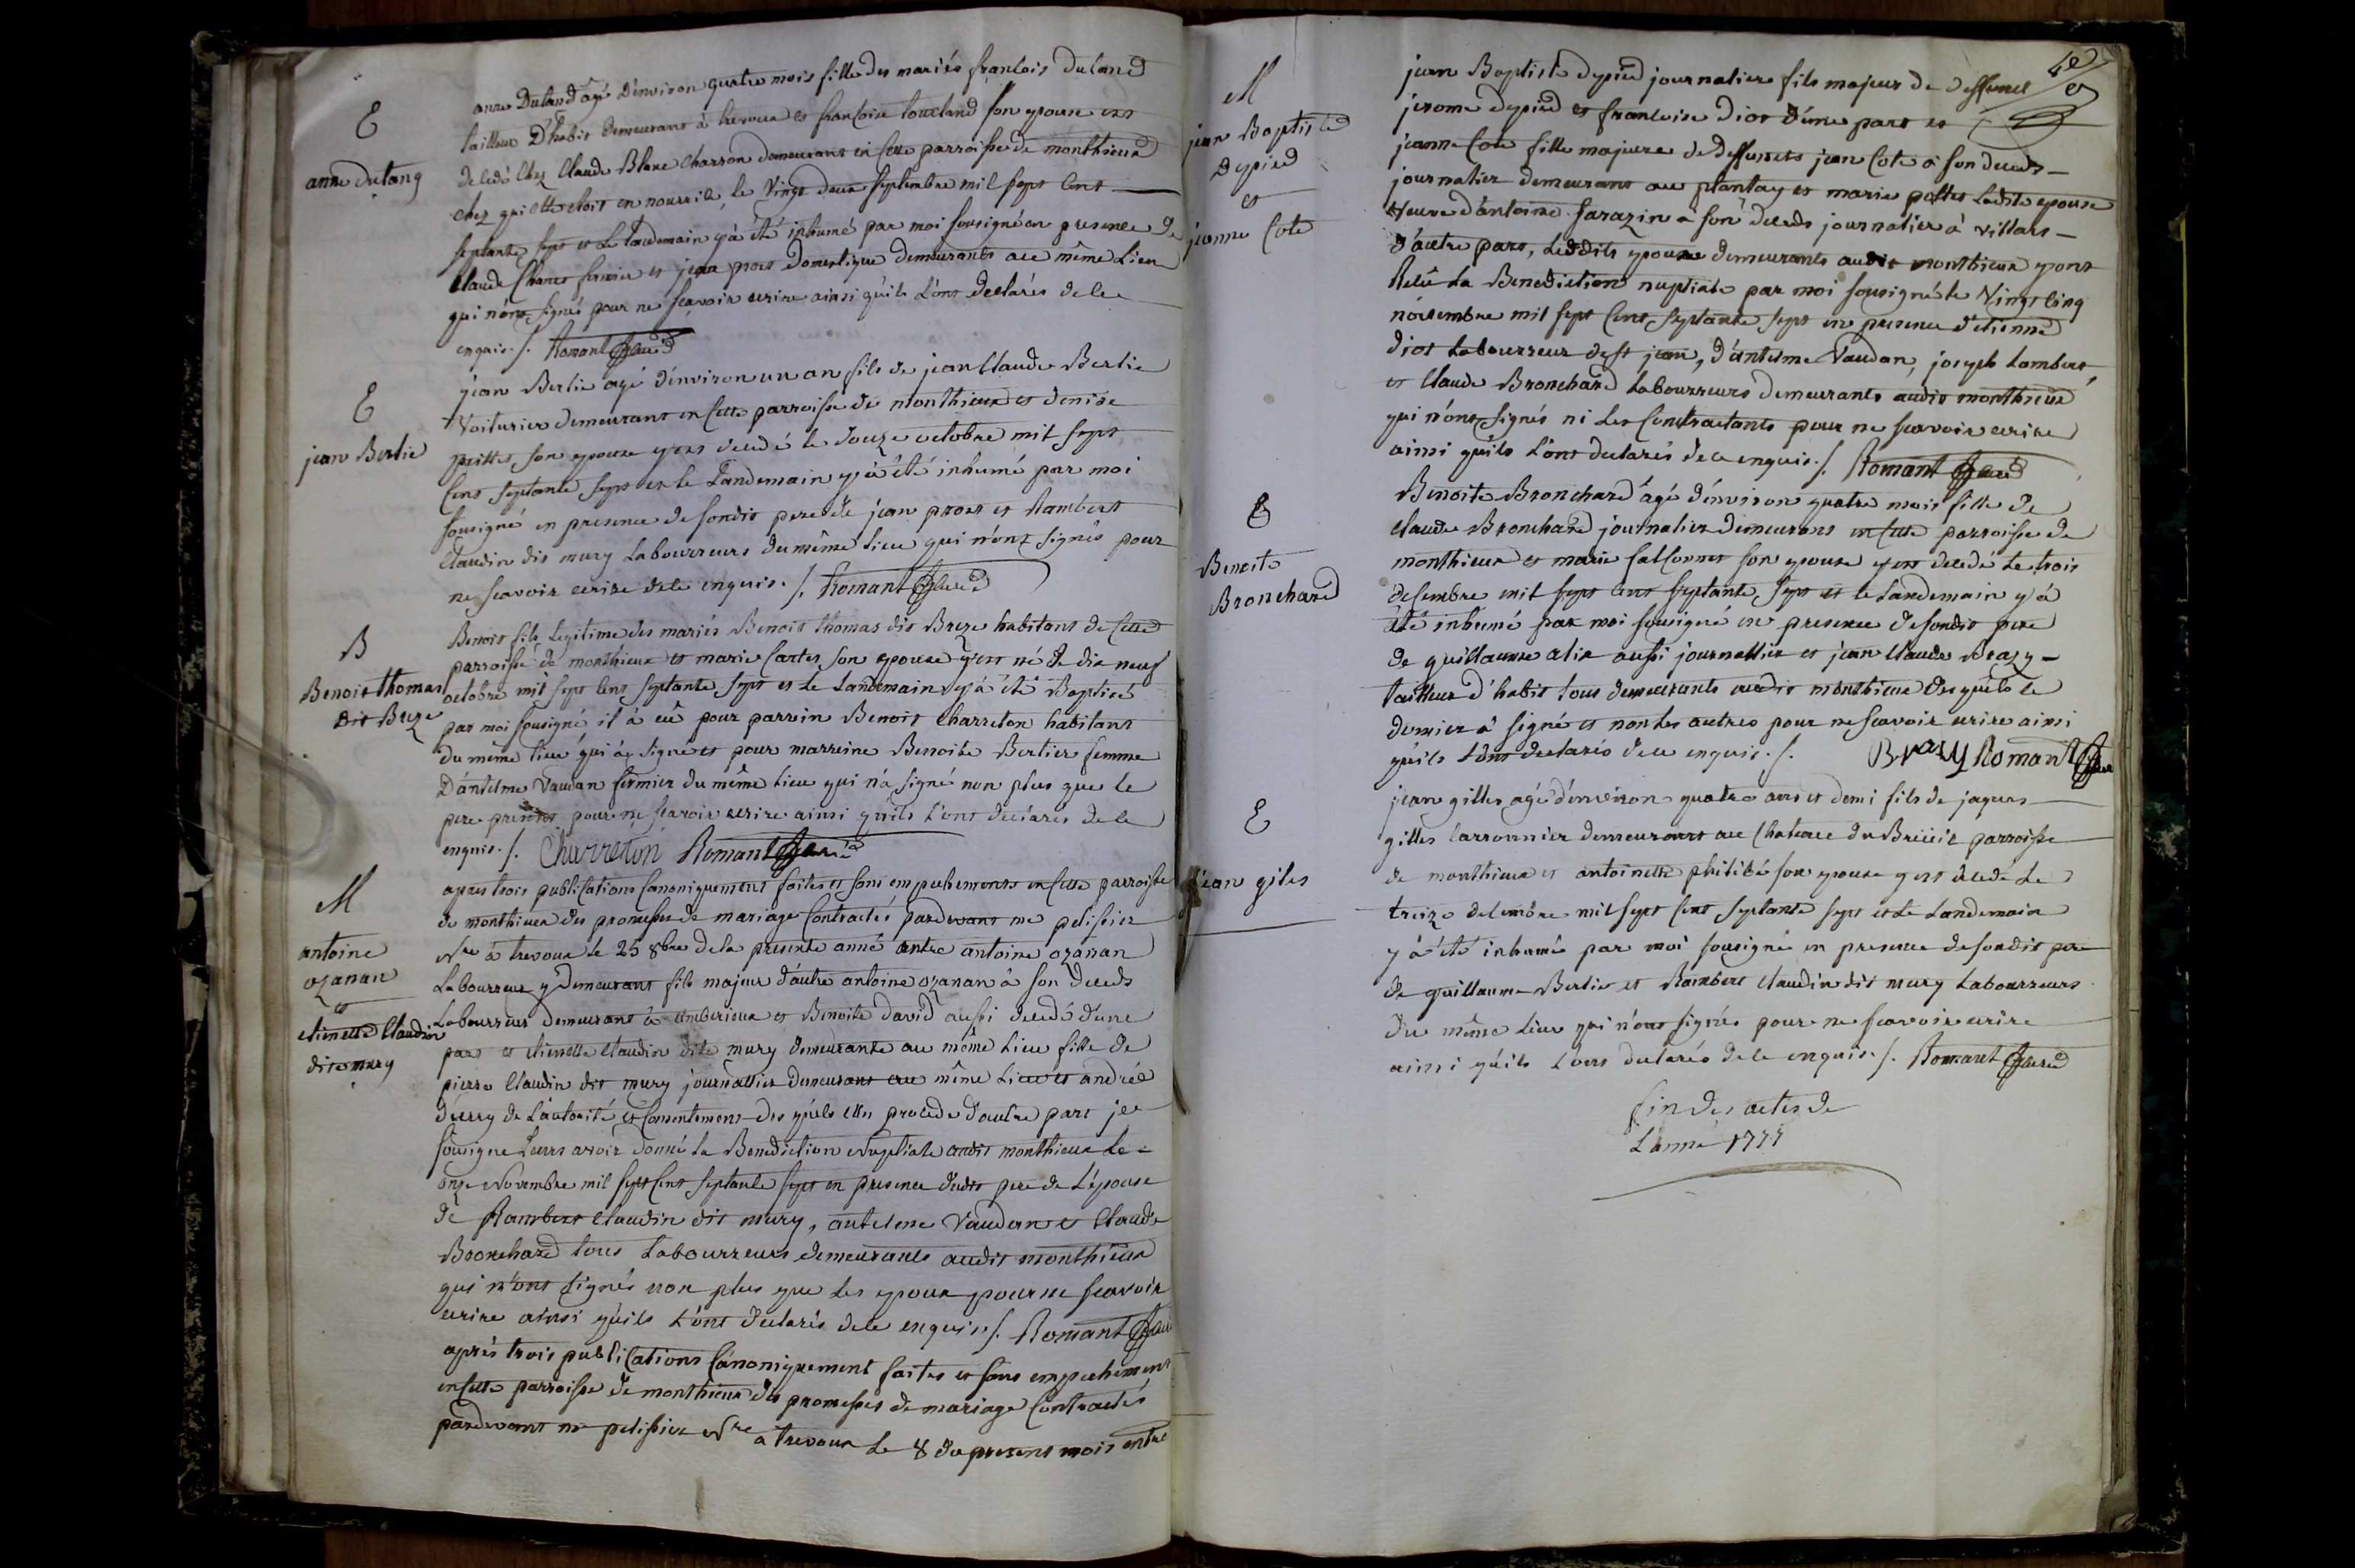 E
anne dutang
anne Duland agé d'environ quatre mois fille des mariés francois duland
tailleur d'habit demeurant à trevoux et francoise son epouse est
decedé chez Claude Blanc charron demeurant en cette parroisse de monthieux
chez qui elle etoit en nourrice, le vingt deux septembre mil sept cent
septante sept et le landemain y à été inhumé par moi sousigné en presence de
Claude fermier et jean prost domestique demeurants au même lieu
qui n'ont signés pour ne scavoir ecrire ainsi qu'ils l'ont declarés de ce
enquis ./. Romant curé
E
jean Berlie
jean Berlie agé d'environ un an fils de jean Claude Berlie
voiturier demeurant en cette parroisse de monthieux et denise
son epouse y est decedé le douze octobre mil sept
cent septante sept et le landemain y à été inhumé par moi
sousigné en presence de sondit pere de jean prost et Rambert
Claudin dit mury Labourreurs du même lieu qui n'ont signés pour
ne scavoir ecrire de ce enquis ./. Romant curé
B
Benoit thomas
dit Breze
Benoit fils legitime des mariés Benoit thomas dit Breze habitant de cette
parroisse de monthieux et marie Cartes son epouse y est né le dix neuf
octobre mil sept cent septante sept et le landemain y à été Baptisé
par moi sousigné il à eü pour parrein Benoit Charreton habitant
du même lieu qui à signé et pour marreine Benoite Bertier femme
D'antelme vaudan fermier du même lieu qui n'a signé non plus que le
pere present pour ne scavoir ecrire ainsi qu'ils l'ont declarés de ce
enquis ./. Charreton Romant curé
M
antoine
ozanan
et
etiennette Claudin
dite mury
apres trois publications canoniquement faites et sans empechements en cette parroisse
de monthieux des promesses de mariage contractés pardevant me pelissier
Nre à trevoux le 25 8bre de la presente anné entre antoine ozanan
Labourreur y demeurant fils majeur d'autre antoine ozanan à son deceds
Labourreur demeurant à amberieux et Benoite david aussi decedé d'une
part et etiennette Claudin dite mury demeurante au même lieu fille de
pierre Claudin dit mury journallier demeurant au même lieu et andrée
de L'autorité et consentement des quels elle procede d'autre part je
sousigné leurs avoir donné la Benediction Nuptiale audit monthieux le
onze Novembre mil sept cent septante sept en presence dudit pere de L'epouse
de Rambert Claudin dit mury, antelme vaudan et Claude
Bronchard tous Labourreurs demeurants audit monthieux
qui n'ont signés non plus que les epoux pour ne scavoir
ecrire ainsi qu'ils l'ont declarés de ce enquis ./. Romant curé
après trois publications canoniquement faites et sans empechement
en cette parroisse de monthieux des promesses de mariage contractés
pardevant me pelissier Nre a trevoux le 8 du present mois entre
M
jean Baptiste
Depied
et
jeanne Cote
jean Baptiste depied journalier fils majeur de deffunct
jerome depied et francoise Diot d'une part et
jeanne Cote fille majeure de deffuncts jean Cote à son deceds
journalier demeurant au plantay et marie ladite epouse
veuve d'antoine sarazin à son deceds journalier à villars
d'autre part, Lesdits epoux demeurants audit monthieux y ont
Reçû la Benediction nuptiale par moi sousigné le Vingt cinq
novembre mil sept cent septante sept en presence d'etienne
diot Labourreur de st jean, d'antelme vaudan, joseph Lambert
et Claude Bronchard Labourreurs demeurants audit monthieux
qui n'ont signés ni les contractants pour ne scavoir ecrire
ainsi qu'ils l'ont declarés de ce enquis ./. Romant curé
E
Benoite
Bronchard
Benoite Bronchard agé d'environ quatre mois fille de
Claude Bronchard journalier demeurant en cette parroisse de
monthieux et marie son epouse y est decedé le trois
decembre mil sept cent septante sept et le landemain y à
été inhumé par moi sousigné en presence de sondit pere
de guillaume alix aussi journallier et jean Claude Brazy
tailleur d'habit tous demeurants audit monthieux des quels le
dernier à signé et non les autres pour ne scavoir ecrire ainsi
qu'ils l'ont declarés de ce enquis ./. Brazy Romant curé
E
jean giles
jean gilles agé d'environ quatre ans et demi fils de jaques
gilles demeurant au chateau du Breüil parroisse
de monthieux et antoinette philibé son epouse y est decedé le
treize decembre mil sept cent septante sept et le landemain
y à été inhumé par moi sousigné en presence de sondit pere
de guillaume Berlie et Rambert Claudin dit mury Labourreurs
du même lieu qui n'ont signés pour ne scavoir ecrire
ainsi qu'ils l'ont declarés de ce enquis ./. Romant curé
fin des actes de
L'anné 1777